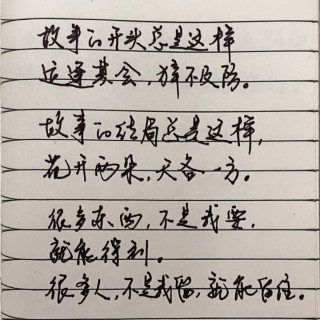 故事的开头总是这样
适逢其会，猝不及防。
故事的结局总是这样，
花开两朵，天各一方。
很多东西，不是我要，
就能得到。
很多人，不是我留，就能留住。